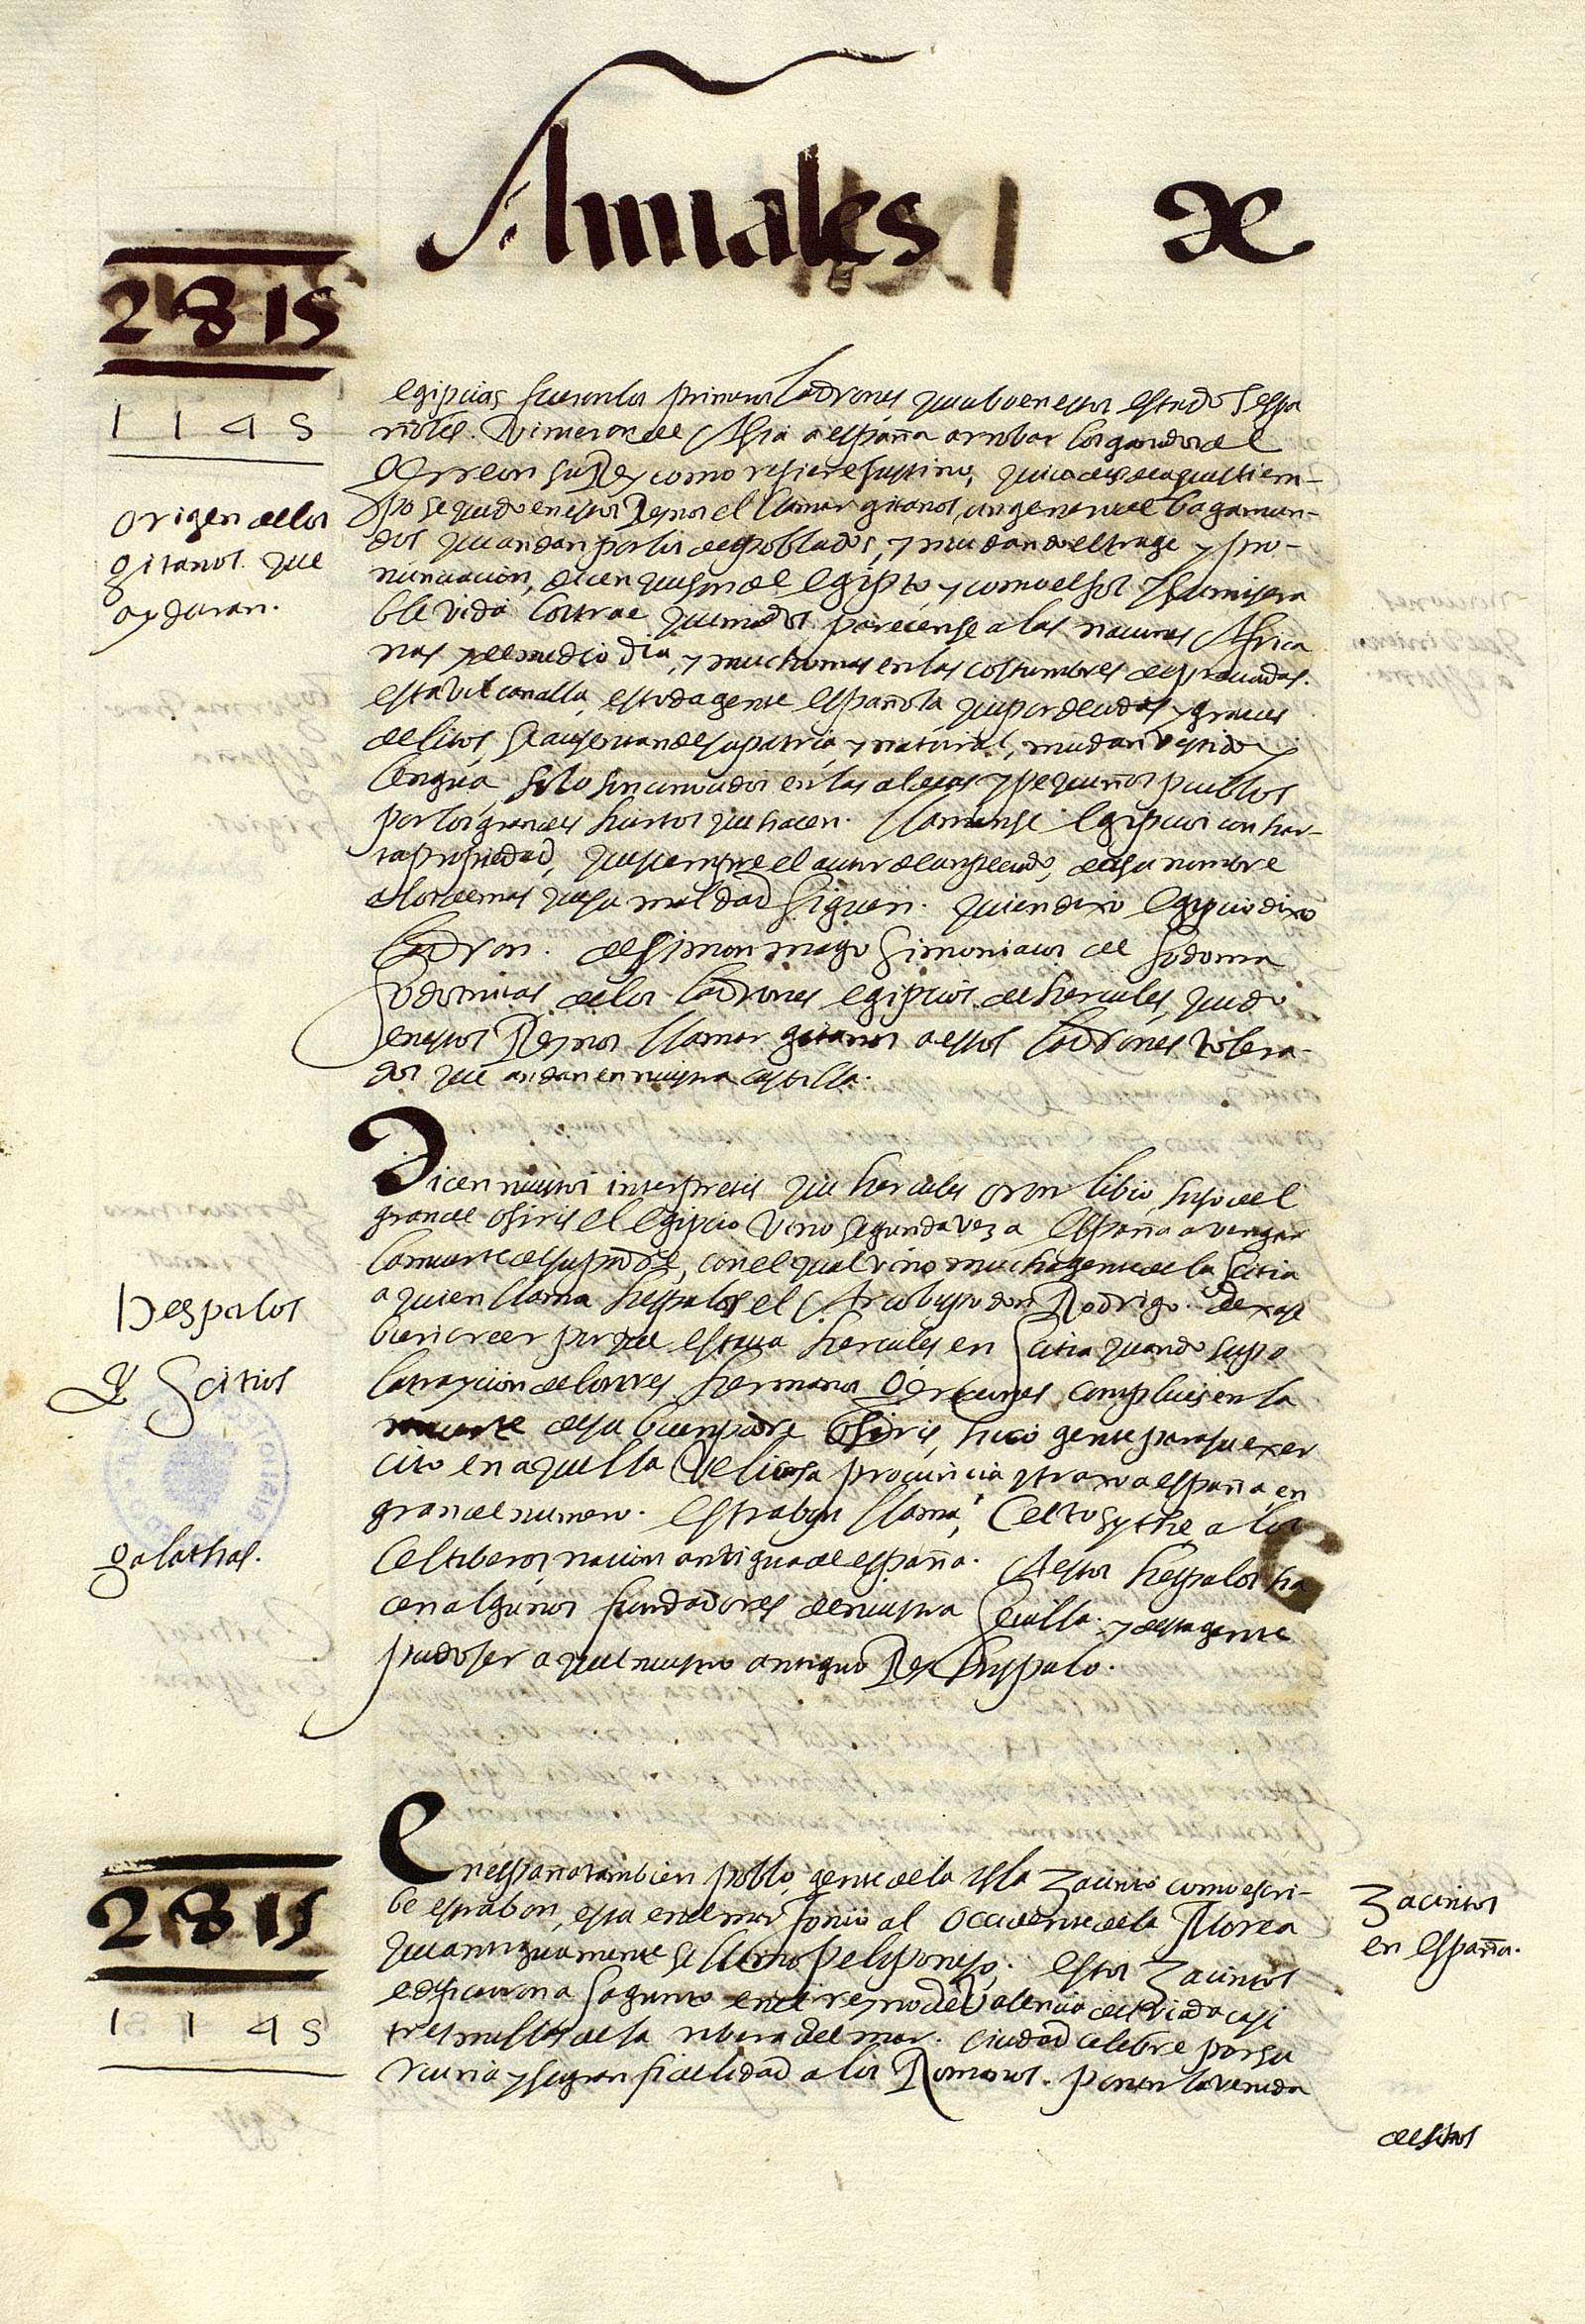 Annales de
2815
1145
Origen de los
gitanos que
oy duran.
egipcios fueron los primeros ladrones que ubo en estos estados espa
ñoles. Vinieron de Asia a españa a robar los ganados de
Gerreon su Rey como refiere Justino, quica desde aquel tiem-
po se quedo en estos Reynos el llamar gitanos, un genero de bagamun-
dos que andan por los despoblados, y mudando el trage y pro-
nunciacion, dicen que son de Egipto y como el sol y su misera
ble vida los trae quemados parecense a las naciones Africa
nas y de medio dia, y mucho mas en las costumbres depravadas.
esta vil canalla, es toda gente española que por deudas y graves
delitos, se ausentan de su patria y natural, mudan vestido y
lengua, solo son conocidos en las aldeas y pequeños pueblos
por los grandes hurtos que hacen. llamanse Egipcios con har-
ta propiedad, que siempre el autor de un pecado, deja su nombre
a los demas que su maldad siguen. quien dixo Egipcio dixo
ladron. de Simon mago Simoniacos de Sodoma
Sodomitas, de los ladrones egipcios de hercules, quedo
en estos Reynos llamar gitanos a estos ladrones tolera-
dos que andan en nuestra castilla.
Dicen nuestros interpretes que hercules oron libio, hijo del
grande osiris el Egipcio vino segunda vez a España a vengar
la muerte de su padre, con el qual vino mucha gente de la Scitia
a quien llama hespalos el Arcobispo don Rodrigo. dexase
bien creer porque estaua hercules en Scitia quando supo
la traycion de los tres hermanos Geriones complices en la
muerte de su buen padre Osiris, hico gente para su exer
cito en aquella velicosa prouincia y traxo a españa en
grande numero. Estrabon llama, Celtoscythe a los
Celtiberos, nacion antigua de españa. A estos hespalos ha
cen algunos fundadores de nuestra Seuilla. y desta gente
pudo ser aquel nuestro antiguo Rey hispalo.
Hespalos
y Scitios
galathas.
2815
1145
En españa tambien poblo, gente de la isla Zacinto como escri-
be estrabon, esta en el mar Jonio al Occidente de la Morea
que antiguamente se llamo Peloponeso. estos Zacintos
edificaron a Sagunto en el reyno de Valencia desviada casi
tres millas de la ribera del mar. ciudad celebre por su
ruina y su gran fidelidad a los Romanos. ponen la venida
Zacintos
en España.
destos